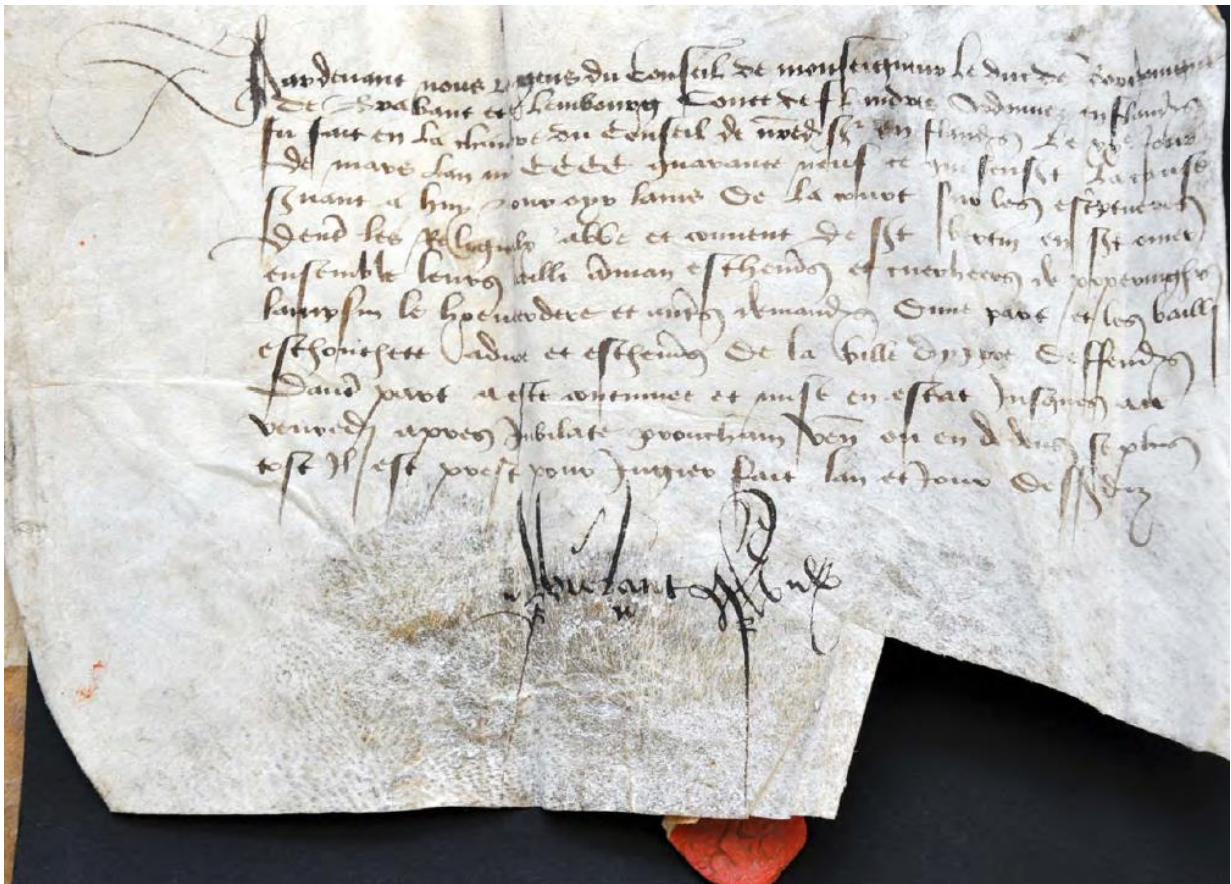 Pardevant nous gens du Conseil de monseigneur le duc de Bourgoingne
de Brabant et de Lembourg Conte de Flandre Ordonnez en flandres
fu fait en la chambre du Conseil de nred. sgr en flandres Le xxe jour
de mars lan m CCCC quarante neuf ce qui sensst La cause
servant a huy pour oyr lamis de la court sur les escriptures
dentre les Religieux abbe et couvent de st bertin en st omer
ensemble leurs bailli amman eschevins et cuerheers de poperinghes
le hoenerdere et autres demandrs Dune part et les bailli
eschouthete advoe et eschevins de la ville dyppre deffendrs
Dautre part a este continuee et mise en estat Jusques au
venredi apres Jubilate prouchain ven ou en dedens se plus
tost Il est prest pour Jugier fait lan et Jour dessusdiz